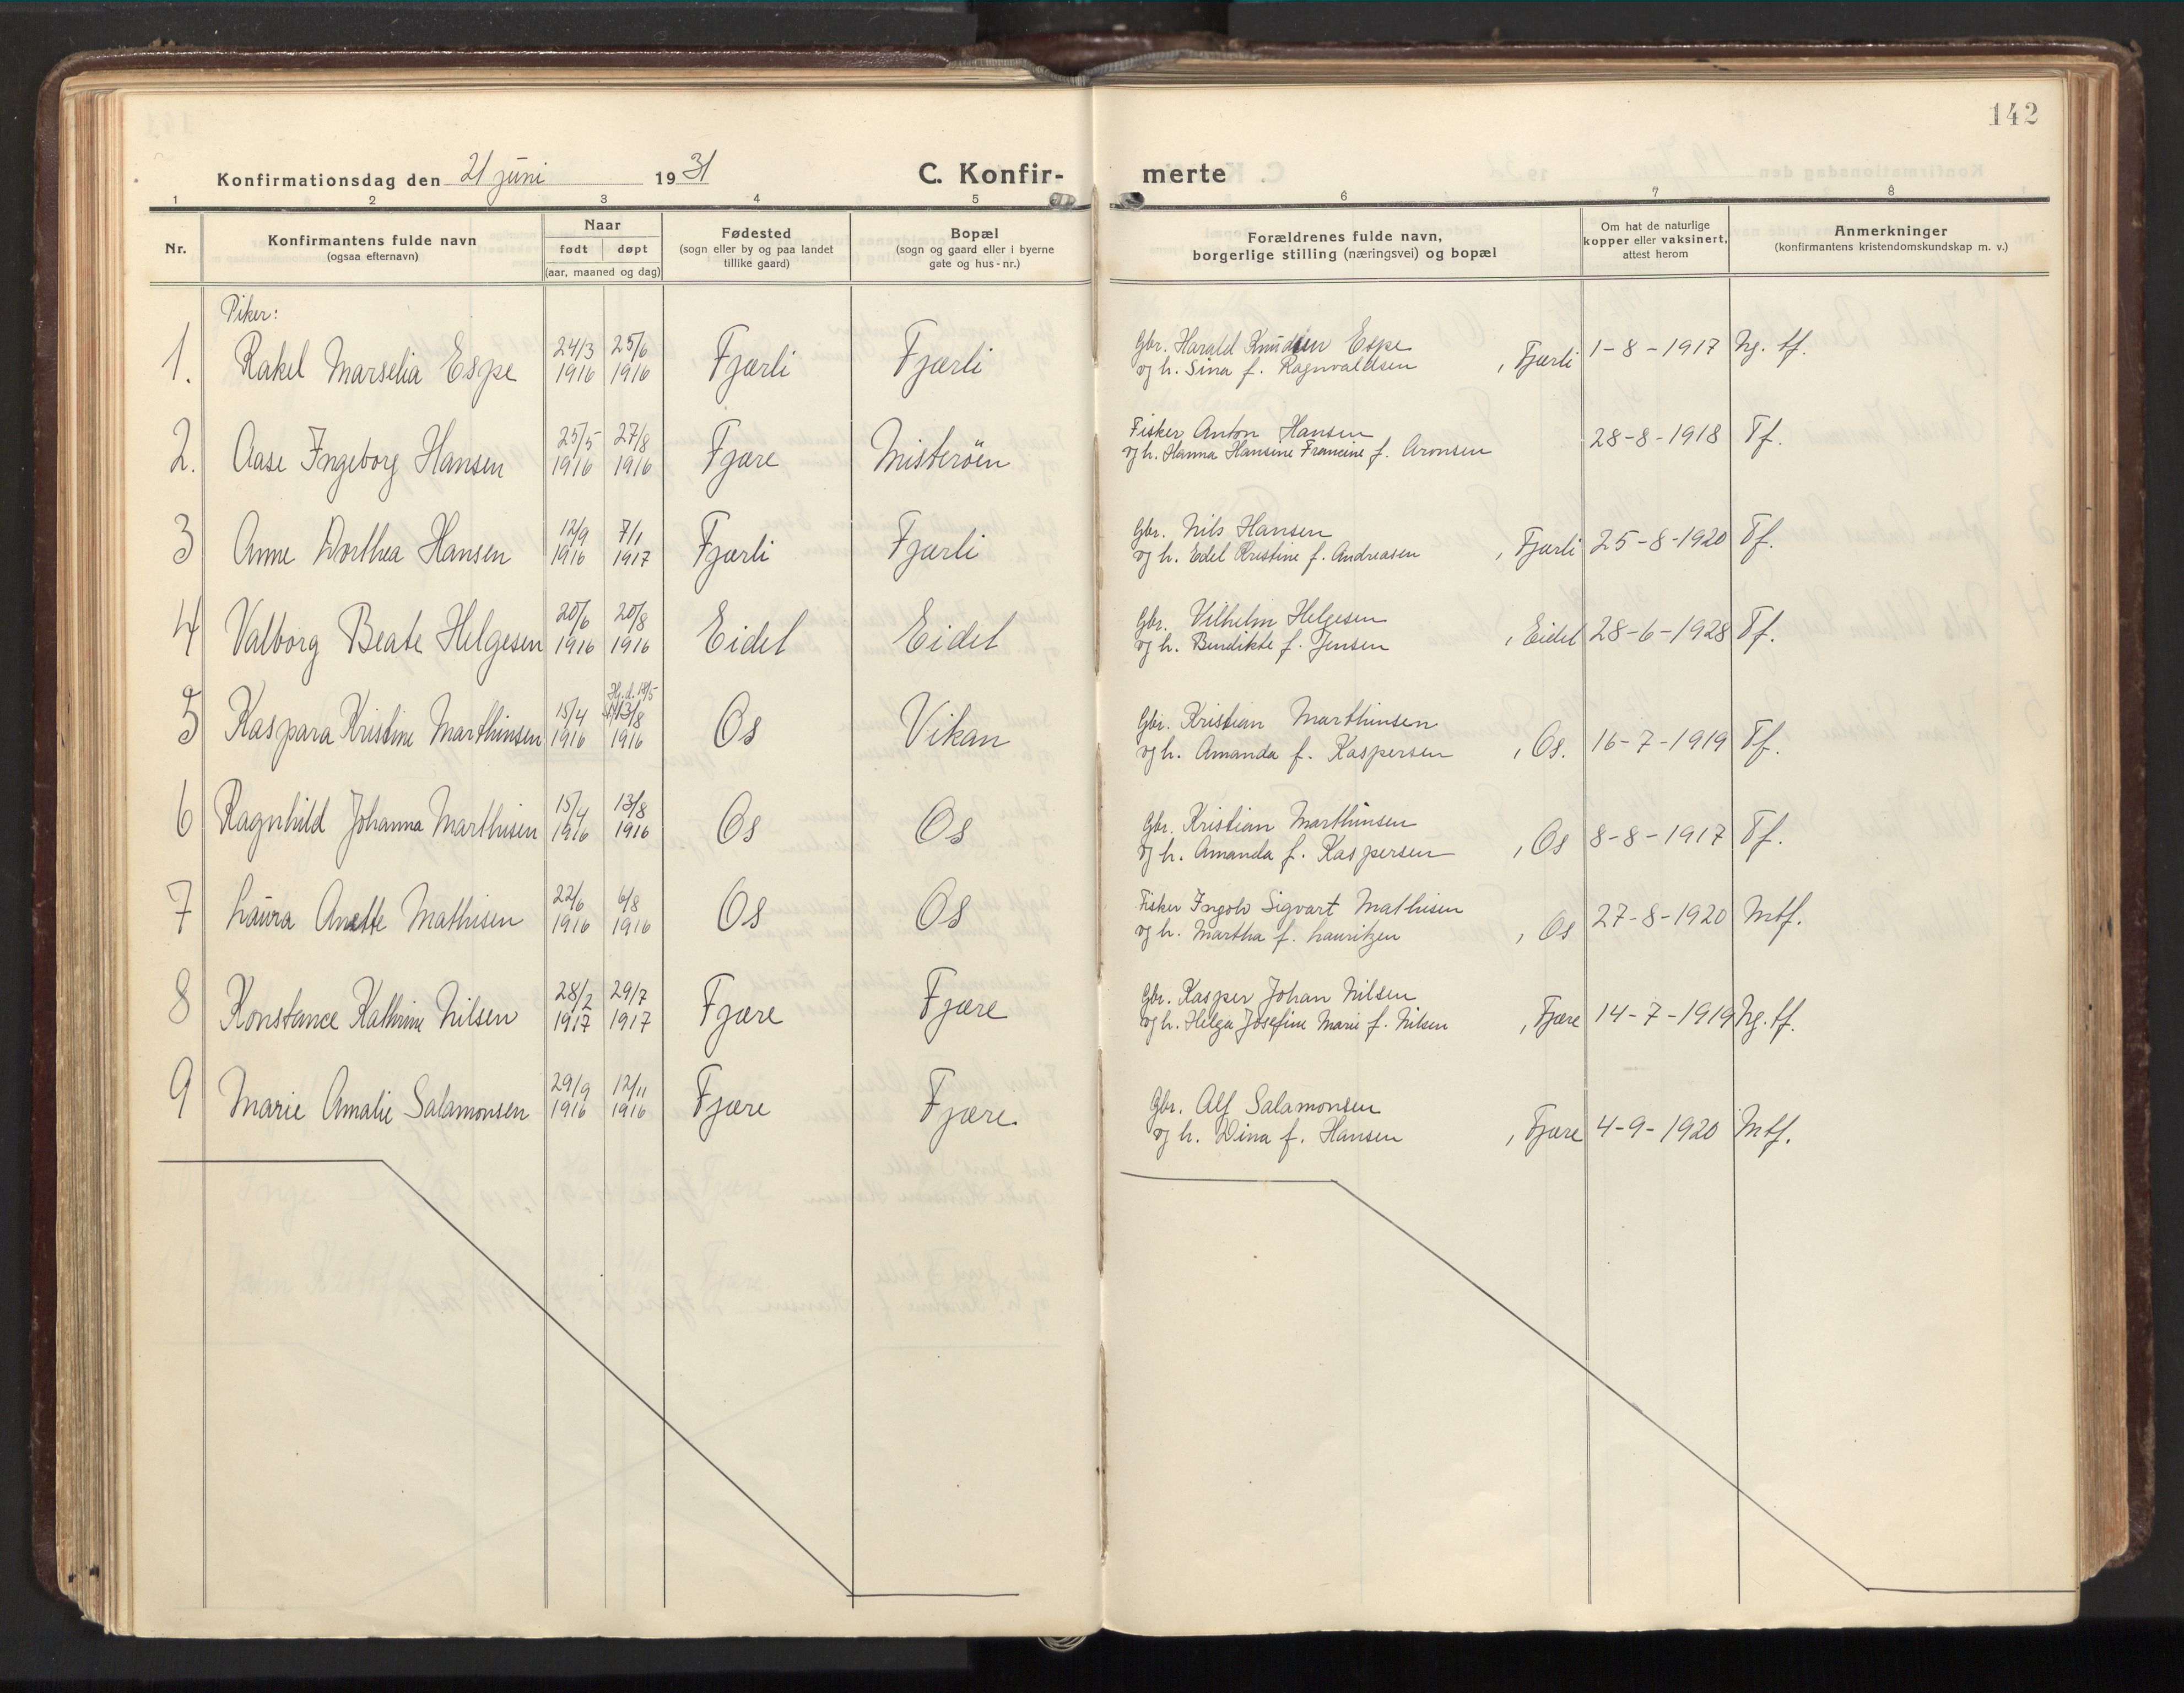 142
Konfirmationsdag den 21 juni 1931 C. Konfir- merte
1 2 3 4 5 6 7 8
Nr. Konfirmantens fulde navn (ogsaa efternavn) Naar født døpt (aar, maaned og dag) Fødested (sogn eller by og paa landet tillike gaard) Bopæl (sogn og gaard eller i byerne gate og hus-nr.) Forældrenes fulde navn, borgerlige stilling (næringsvei) og bopæl Om hat de naturlige kopper eller vaksinert, attest herom Anmerkninger (konfirmantens kristendomskundskap m. v.)
Piker:
1. Rakel Marselia Espe 24/3 1916 25/6 1916 Fjærli Fjærli Gbr. Harald Knudsen Espe og h. Sina f. Ragnvaldsen , Fjærli 1-8-1917 Ng. tf.
2. Aase Ingeborg Hansen 25/5 1916 27/8 1916 Fjære Misterøen Fisker Anton Hansen og h. Hanna Hansine Francine f. Aronsen 28-8-1918 Tf.
3 Anne Dorthea Hansen 12/9 1916 7/1 1917 Fjærli Fjærli Gbr. Nils Hansen og h. Edel Kristine f. Andreasen , Fjærli 25-8-1920 Tf.
4 Valborg Beate Helgesen 20/6 1916 20/8 1916 Eidet Eidet Gbr. Vilhelm Helgesen og h. Bendikte f. Jensen , Eidet 28-6-1928 Tf.
5 Kaspara Kristine Marthinsen 15/4 1916 Hj.d. 18/5 13/8 1916 Os Vikan Gbr. Kristian Marthinsen og h. Amanda f. Kaspersen , Os. 16-7-1919 Tf.
6 Ragnhild Johanna Marthisen 15/4 1916 13/8 1916 Os Os Gbr. Kristian Marthinsen og h. Amanda f. Kaspersen , Os 8-8-1917 Tf.
7 Laura Anette Mathisen 22/6 1916 6/8 1916 Os Os Fisker Ingolv Sigvart Mathisen og h. Martha f. Lauritzen , Os 27-8-1920 Mtf.
8 Konstance Kathrine Nilsen 28/2 1917 29/7 1917 Fjære Fjære Gbr. Kasper Johan Nilsen og h. Helga Josefine Marie f. Nilsen , Fjære 14-7-1919 Ng. tf.
9 Marie Amalie Salamonsen 29/9 1916 12/11 1916 Fjære Fjære. Gbr. Alf Salamonsen og h. Dina f. Hansen , Fjære 4-9-1920 Mtf.